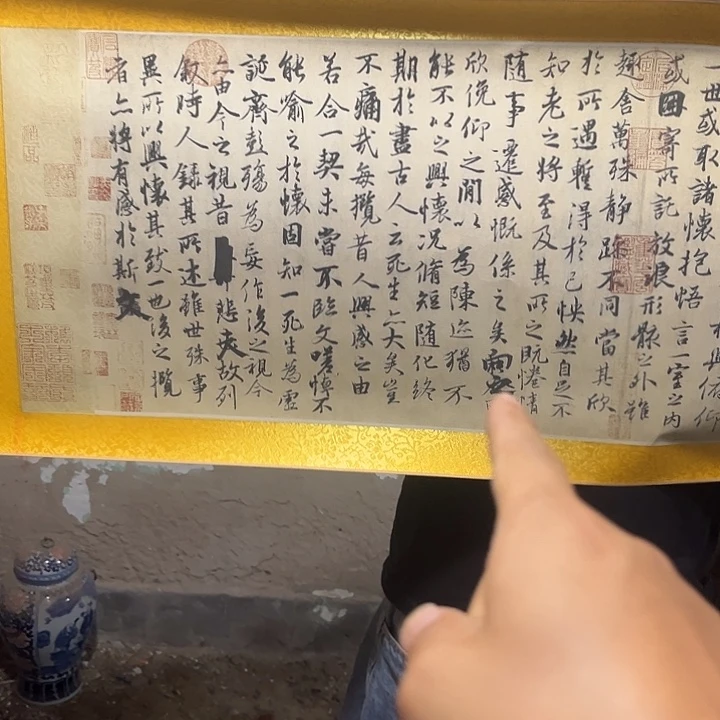 與俯仰
一世或取諸懷抱悟言一室之內
或因寄所託放浪形骸之外雖
趣舍萬殊靜躁不同當其欣
於所遇蹔得於己怏然自足不
知老之將至及其所之既惓情
隨事遷感慨係之矣向之
欣俛仰之閒以為陳迹猶不
能不以之興懷況脩短隨化終
期於盡古人云死生亦大矣豈
不痛哉每攬昔人興感之由
若合一契未嘗不臨文嗟悼不
能喻之於懷固知一死生為虛
誕齊彭殤為妄作後之視今
亦由今之視昔悲夫故列
敘時人錄其所述雖世殊事
異所以興懷其致一也後之攬
者亦將有感於斯文